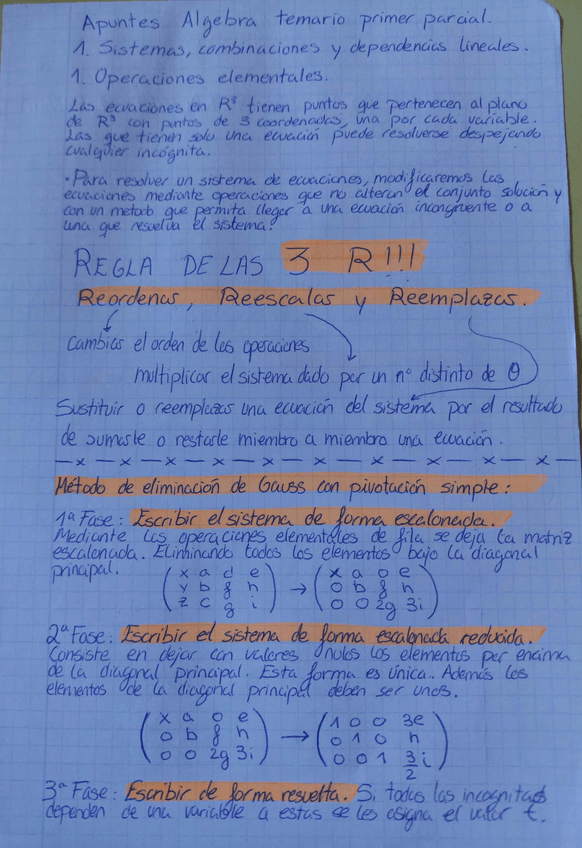 Apuntes Algebra temario primer parcial.
1. Sistemas, combinaciones y dependencias lineales.
1. Operaciones elementales.
Las ecuaciones en R³ tienen puntos que pertenecen al plano
de R³ con puntos de 3 coordenadas, una por cada variable.
Las que tienen solo una ecuación puede resolverse despejando
cualquier incógnita.
• Para resolver un sistema de ecuaciones, modificaremos las
ecuaciones mediante operaciones que no alteran el conjunto solución y
con un metodo que permita llegar a una ecuación incongruente o a
una que resuelva el sistema.
REGLA DE LAS 3 R!!!
Reordenas, Reescalas y Reemplazas.
Cambias el orden de las operaciones
multiplicar el sistema dado por un nº distinto de 0
Sustituir o reemplazas una ecuación del sistema por el resultado
de sumarle o restarle miembro a miembro una ecuación.
— x — x — x — x — x — x — x — x — x — x — x —
Método de eliminación de Gauss con pivotación simple:
1ª Fase: Escribir el sistema de forma escalonada.
Mediante las operaciones elementales de fila se deja la matriz
escalonada. Eliminando todos los elementos bajo la diagonal
principal.
( x a d e ) → ( x a 0 e )
( y b g h ) ( 0 b g h )
( z c g i ) ( 0 0 2g 3i )
2ª Fase: Escribir el sistema de forma escalonada reducida.
Consiste en dejar con valores nulos los elementos por encima
de la diagonal principal. Esta forma es única. Además los
elementos de la diagonal principal deben ser unos.
( x a 0 e ) → ( 1 0 0 3e )
( 0 b g h ) ( 0 1 0 h )
( 0 0 2g 3i ) ( 0 0 1 3/2 i )
3ª Fase: Escribir de forma resuelta. Si todas las incognitas
dependen de una variable a estas se les asigna el valor t.